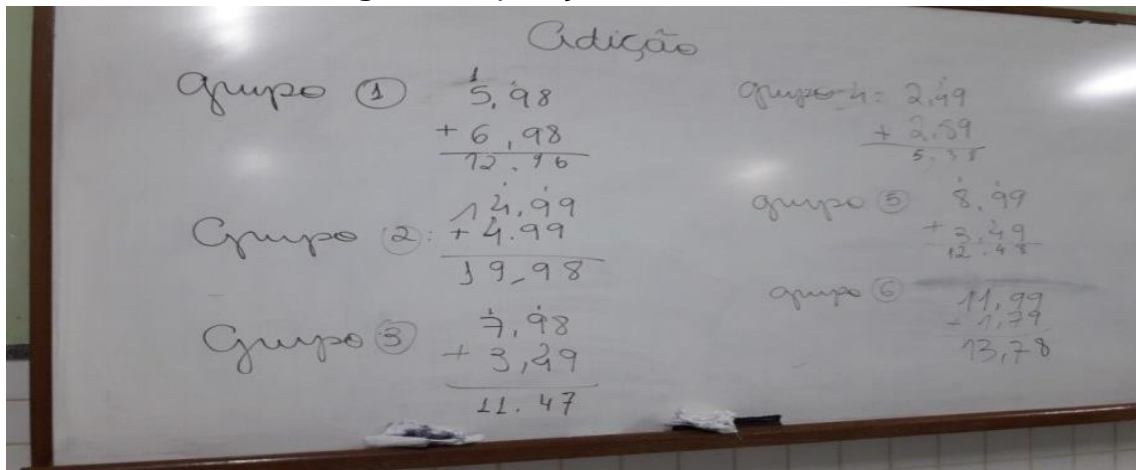 Adição
Grupo 1 5,98
+ 6,98
12.96
Grupo 2: 14,99
+ 4.99
19,98
Grupo 3 7,98
+ 3,49
11.47
grupo 4: 2,49
+ 2,89
5,38
grupo 5 8,99
+ 3,49
12.48
grupo 6 11,99
+ 1,79
13,78